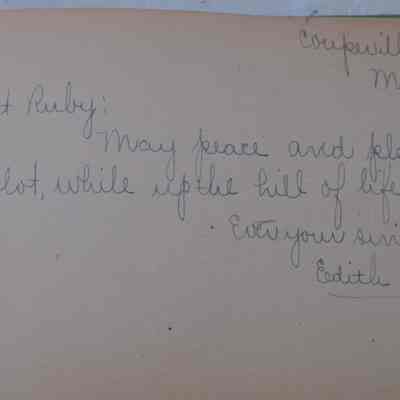 Coupevill
M
t Ruby:
May peace and ple
lot, while up the hill of life
Ever your sin
Edith